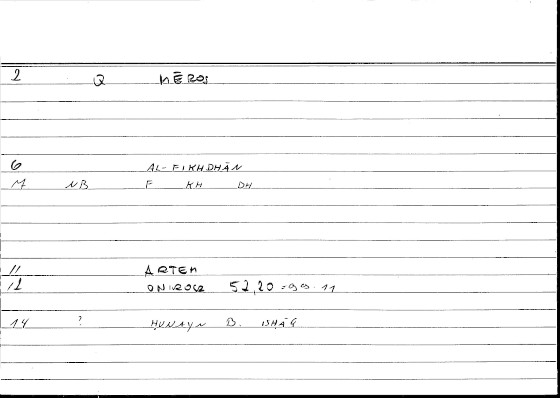 2 Q MĒROS
6 AL-FIKHDHĀN
M NB F KH DH
11 ARTEM
12 ONIROCR 52,20 = 99.11
14 ? ḤUNAYN B. ISḤĀQ